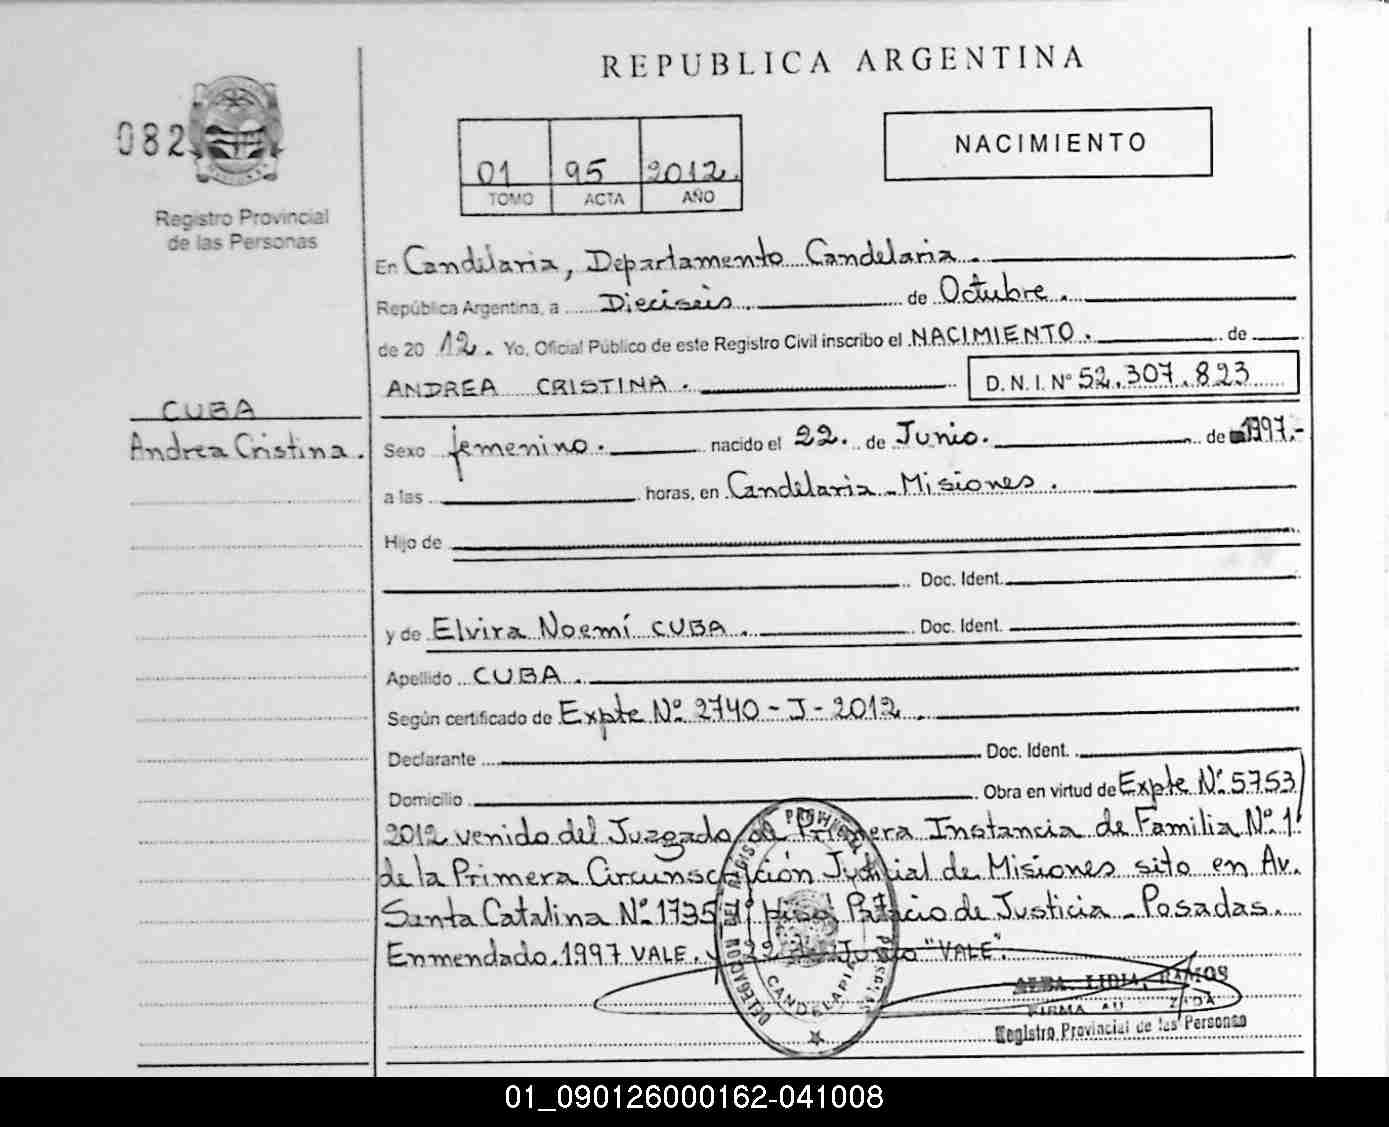 REPUBLICA ARGENTINA
082
Registro Provincial
de las Personas
01 95 2012.
TOMO ACTA AÑO
NACIMIENTO
En Candelaria, Departamento Candelaria.
República Argentina, a Dieciseis. de Octubre.
de 2012. Yo, Oficial Público de este Registro Civil inscribo el NACIMIENTO. de
ANDREA CRISTINA. D.N.I. Nº 52.307.823
CUBA
Andrea Cristina.
Sexo femenino. nacido el 22. de Junio. de 1997.-
a las horas, en Candelaria - Misiones.
Hijo de
Doc. Ident.
y de Elvira Noemí CUBA. Doc. Ident.
Apellido CUBA.
Según certificado de Expte Nº 2740 - J - 2012.
Declarante Doc. Ident.
Domicilio Obra en virtud de Expte Nº 5753/
2012 venido del Juzgado de Primera Instancia de Familia Nº 1
de la Primera Circunscripción Judicial de Misiones sito en Av.
Santa Catalina Nº 1735 1º Piso Palacio de Justicia - Posadas.
Enmendado. 1997 VALE. y 22 de Junio "VALE".
DELEGACION DEL REGISTRO PROVINCIAL
CANDELARIA
ALBA LIDIA RAMOS
FIRMA
Registro Provincial de las Personas
01_090126000162-041008